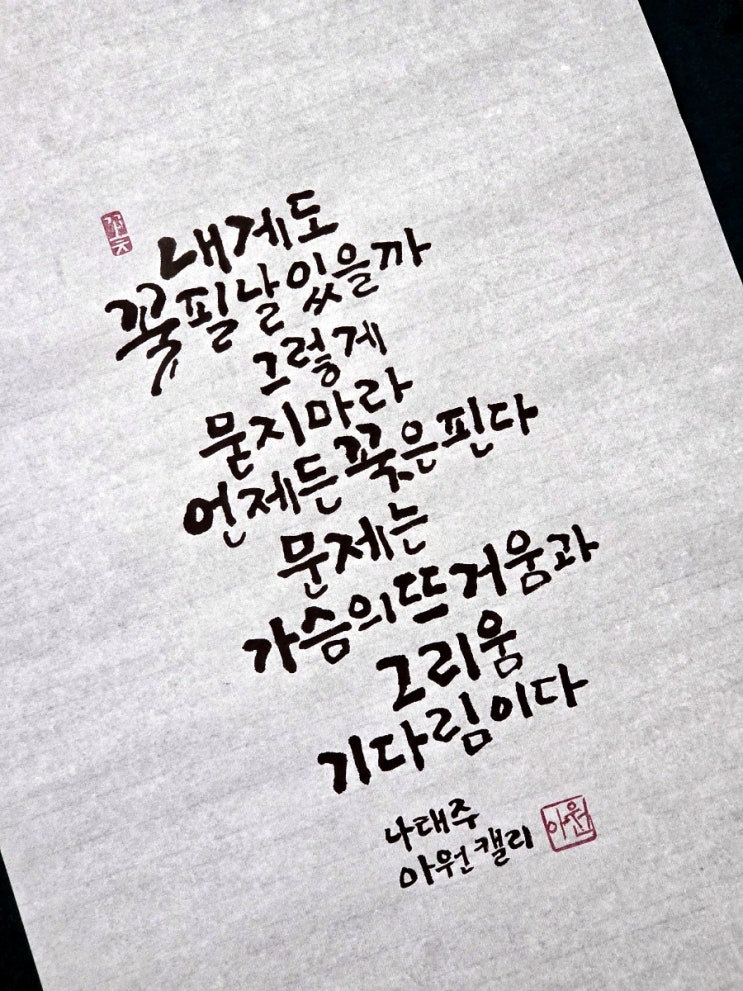 내게도
꽃필날있을까
그렇게
묻지마라
언제든꽃은핀다
문제는
가슴의뜨거움과
그리움
기다림이다
나태주
아원캘리
아원